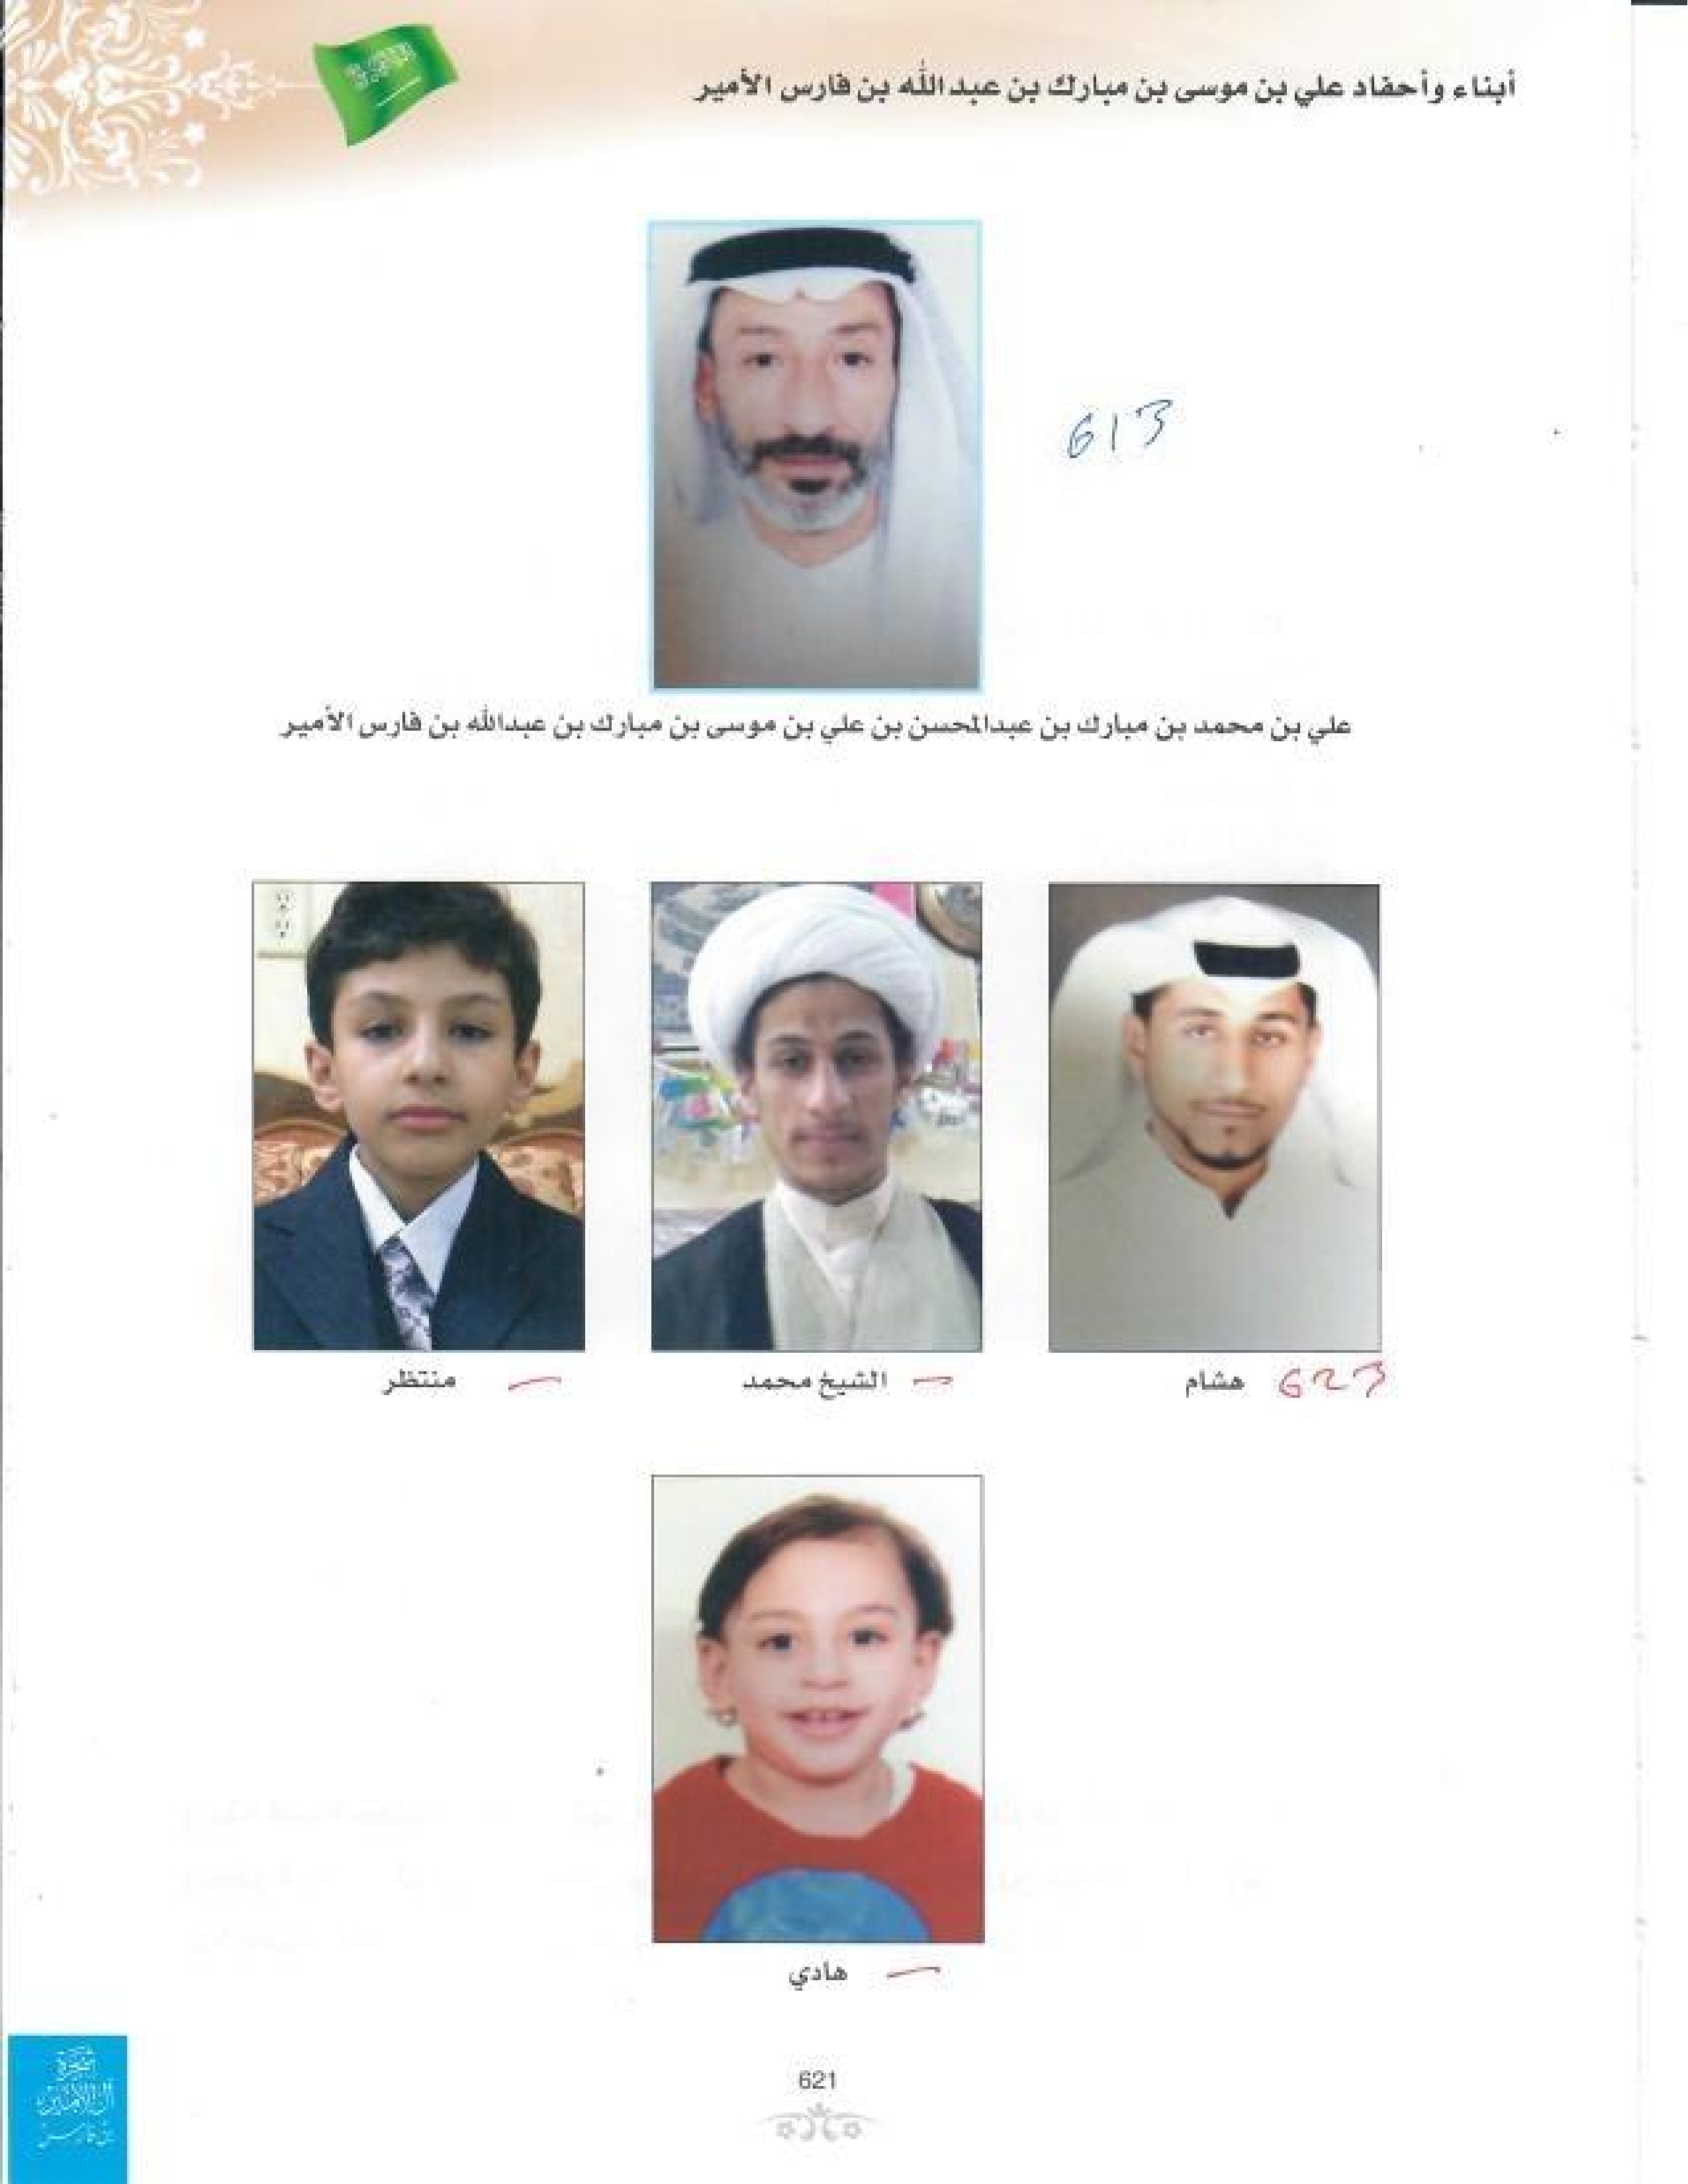 أبناء وأحفاد علي بن موسى بن مبارك بن عبدالله بن فارس الأمير
613
علي بن محمد بن مبارك بن عبدالمحسن بن علي بن موسى بن مبارك بن عبدالله بن فارس الأمير
623 هشام
الشيخ محمد
منتظر
هادي
شجرة
آل الأمير
بن فارس
621